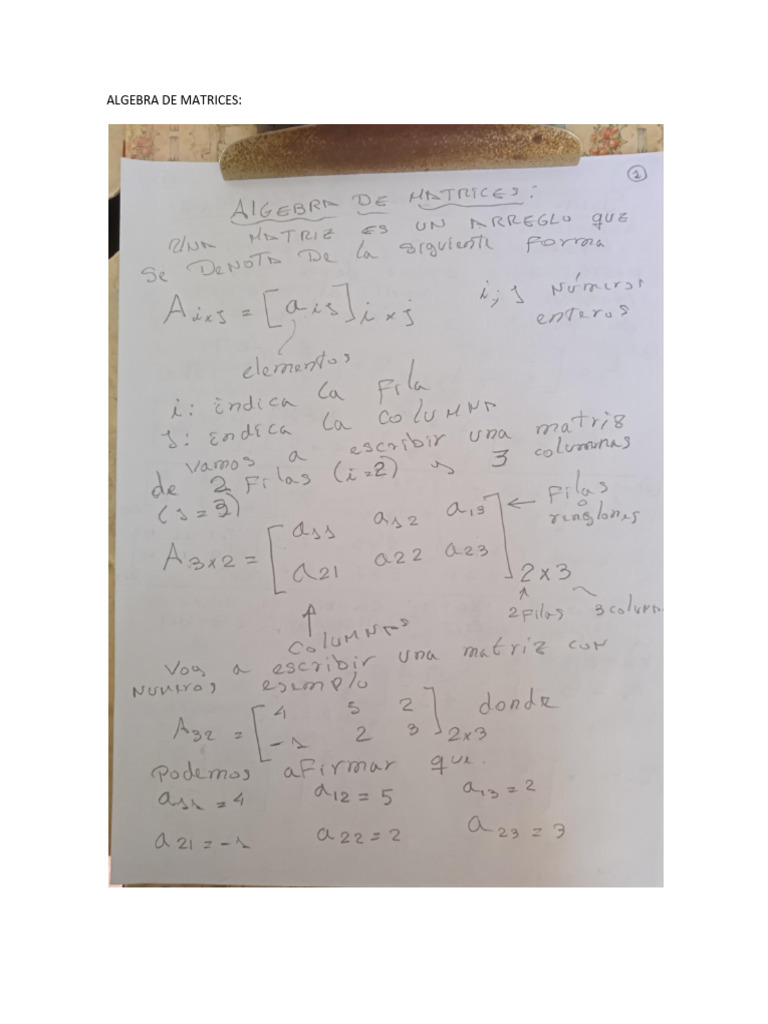 ALGEBRA DE MATRICES:
1
AlGEBRA DE MATRICES:
UNA MATRIZ ES UN ARREGLO QUE
SE DENOTA DE la siguiente forma
A i x j = [a i j] i x j   i, j Números
enteros
elementos
i: indica la Fila
j: indica la COlUMNA
Vamos a escribir una matriz
de 2 Filas (i=2) y 3 columnas
(j=3)
A 3x2 = [ a11 a12 a13 ← Filas o renglones
a21 a22 a23 ] 2x3
2 Filas 3 colum
COlUMNAS
Voy a escribir una matriz con
numeros, ejemplo
A32 = [ 4 5 2 donde
-1 2 3 ] 2x3
Podemos afirmar que.
a11 = 4 a12 = 5 a13 = 2
a21 = -1 a22 = 2 a23 = 3